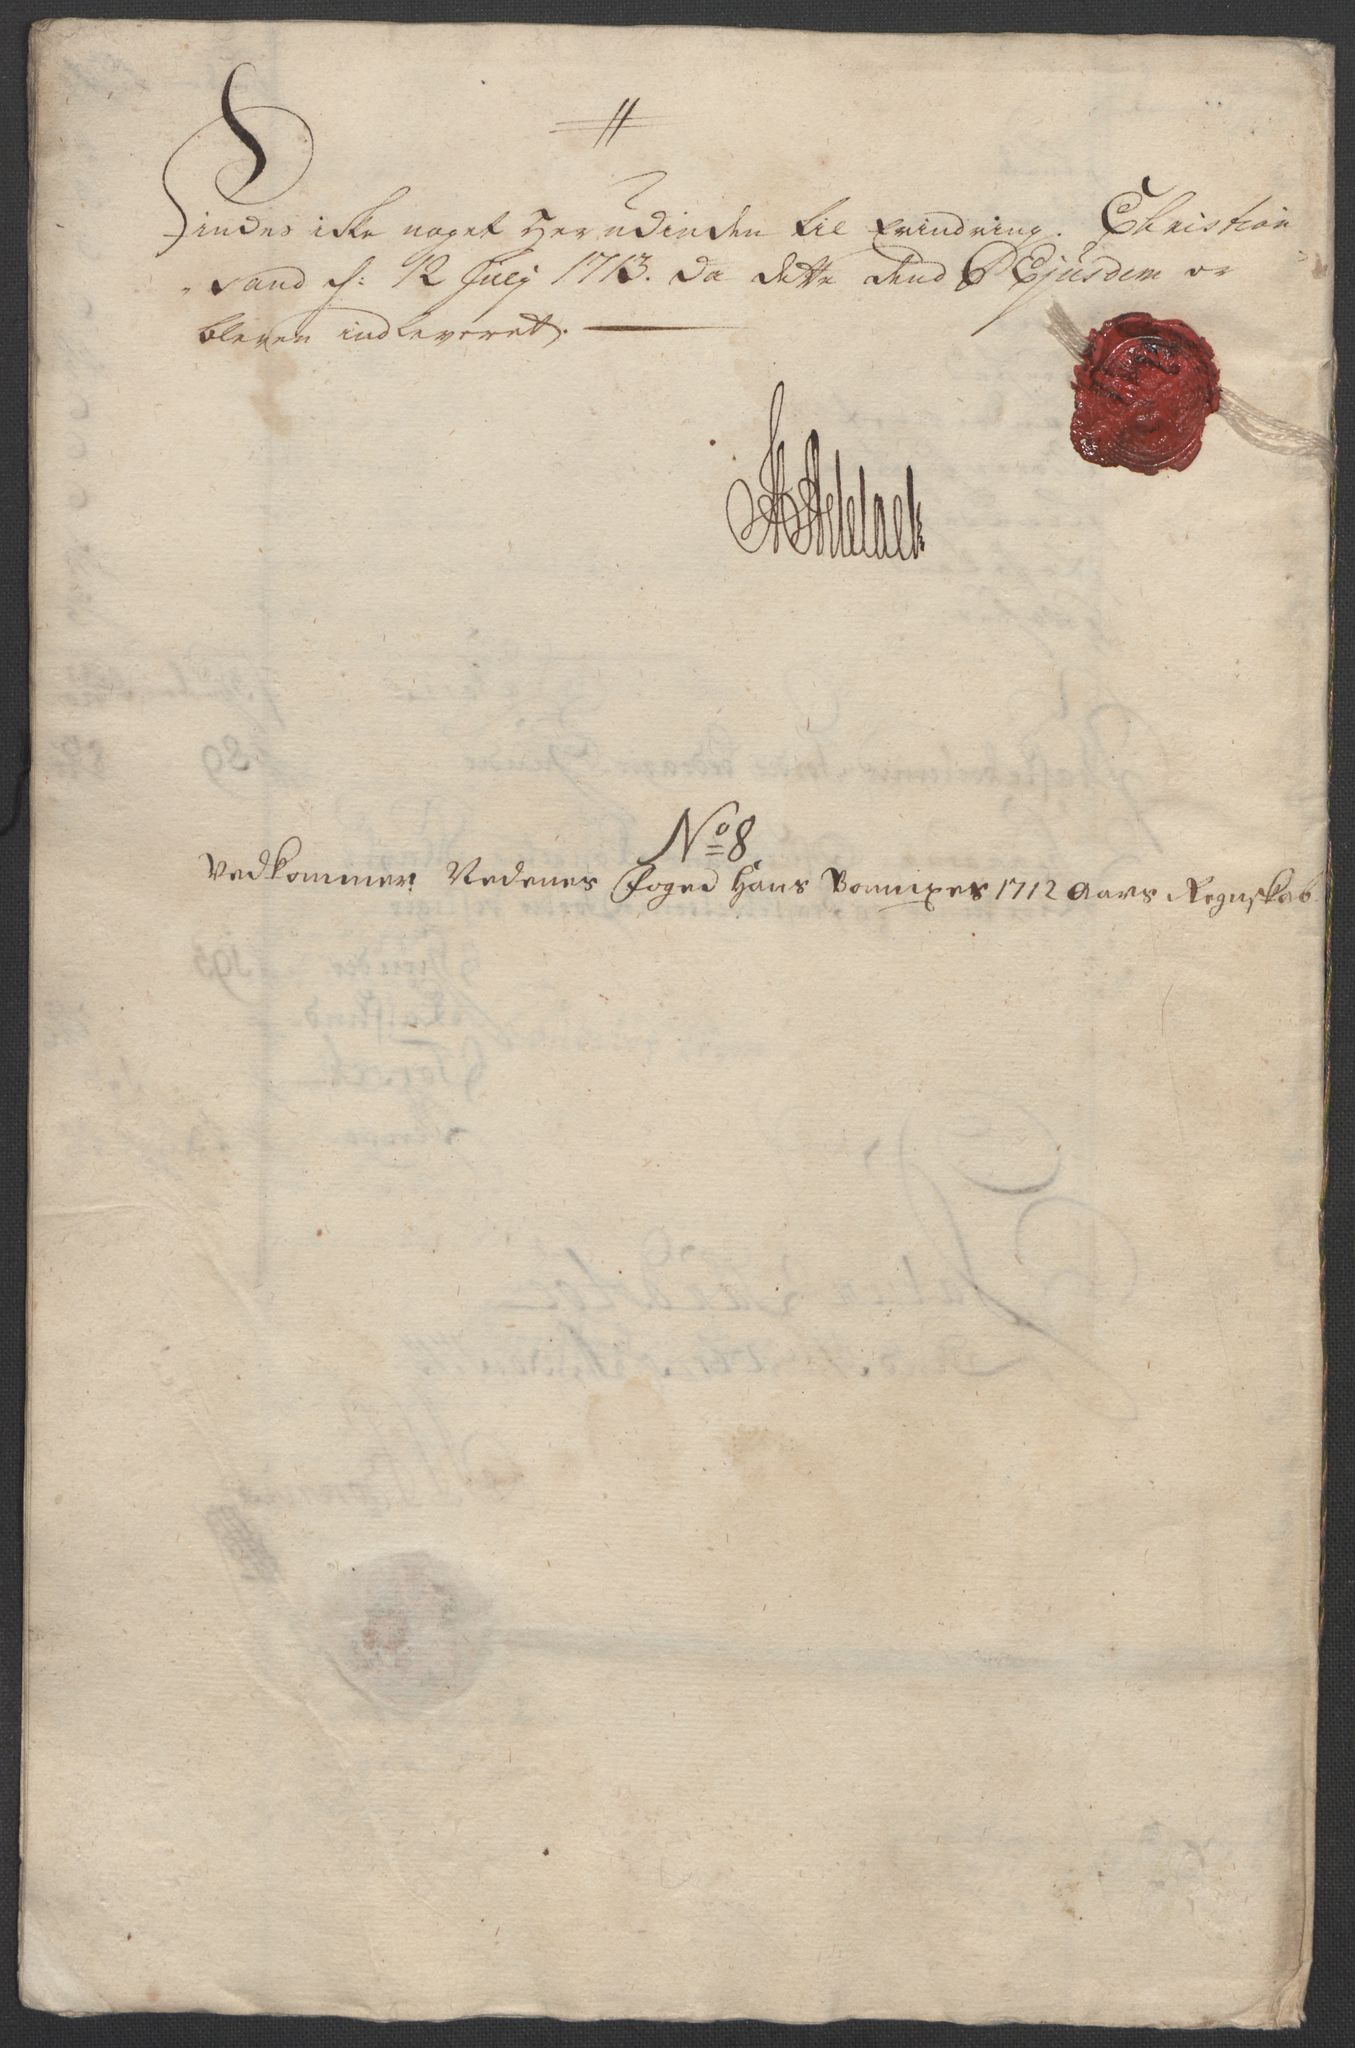 Findes icke noget herudinden til Erindring. Christian
sand d: 12 Julij 1713. da dette dend 8 Ejusdem er
bleven indleveret.
No 8
Vedkommer Nedenes Foged Hans Bonnixes 1712 Aars Regnskab